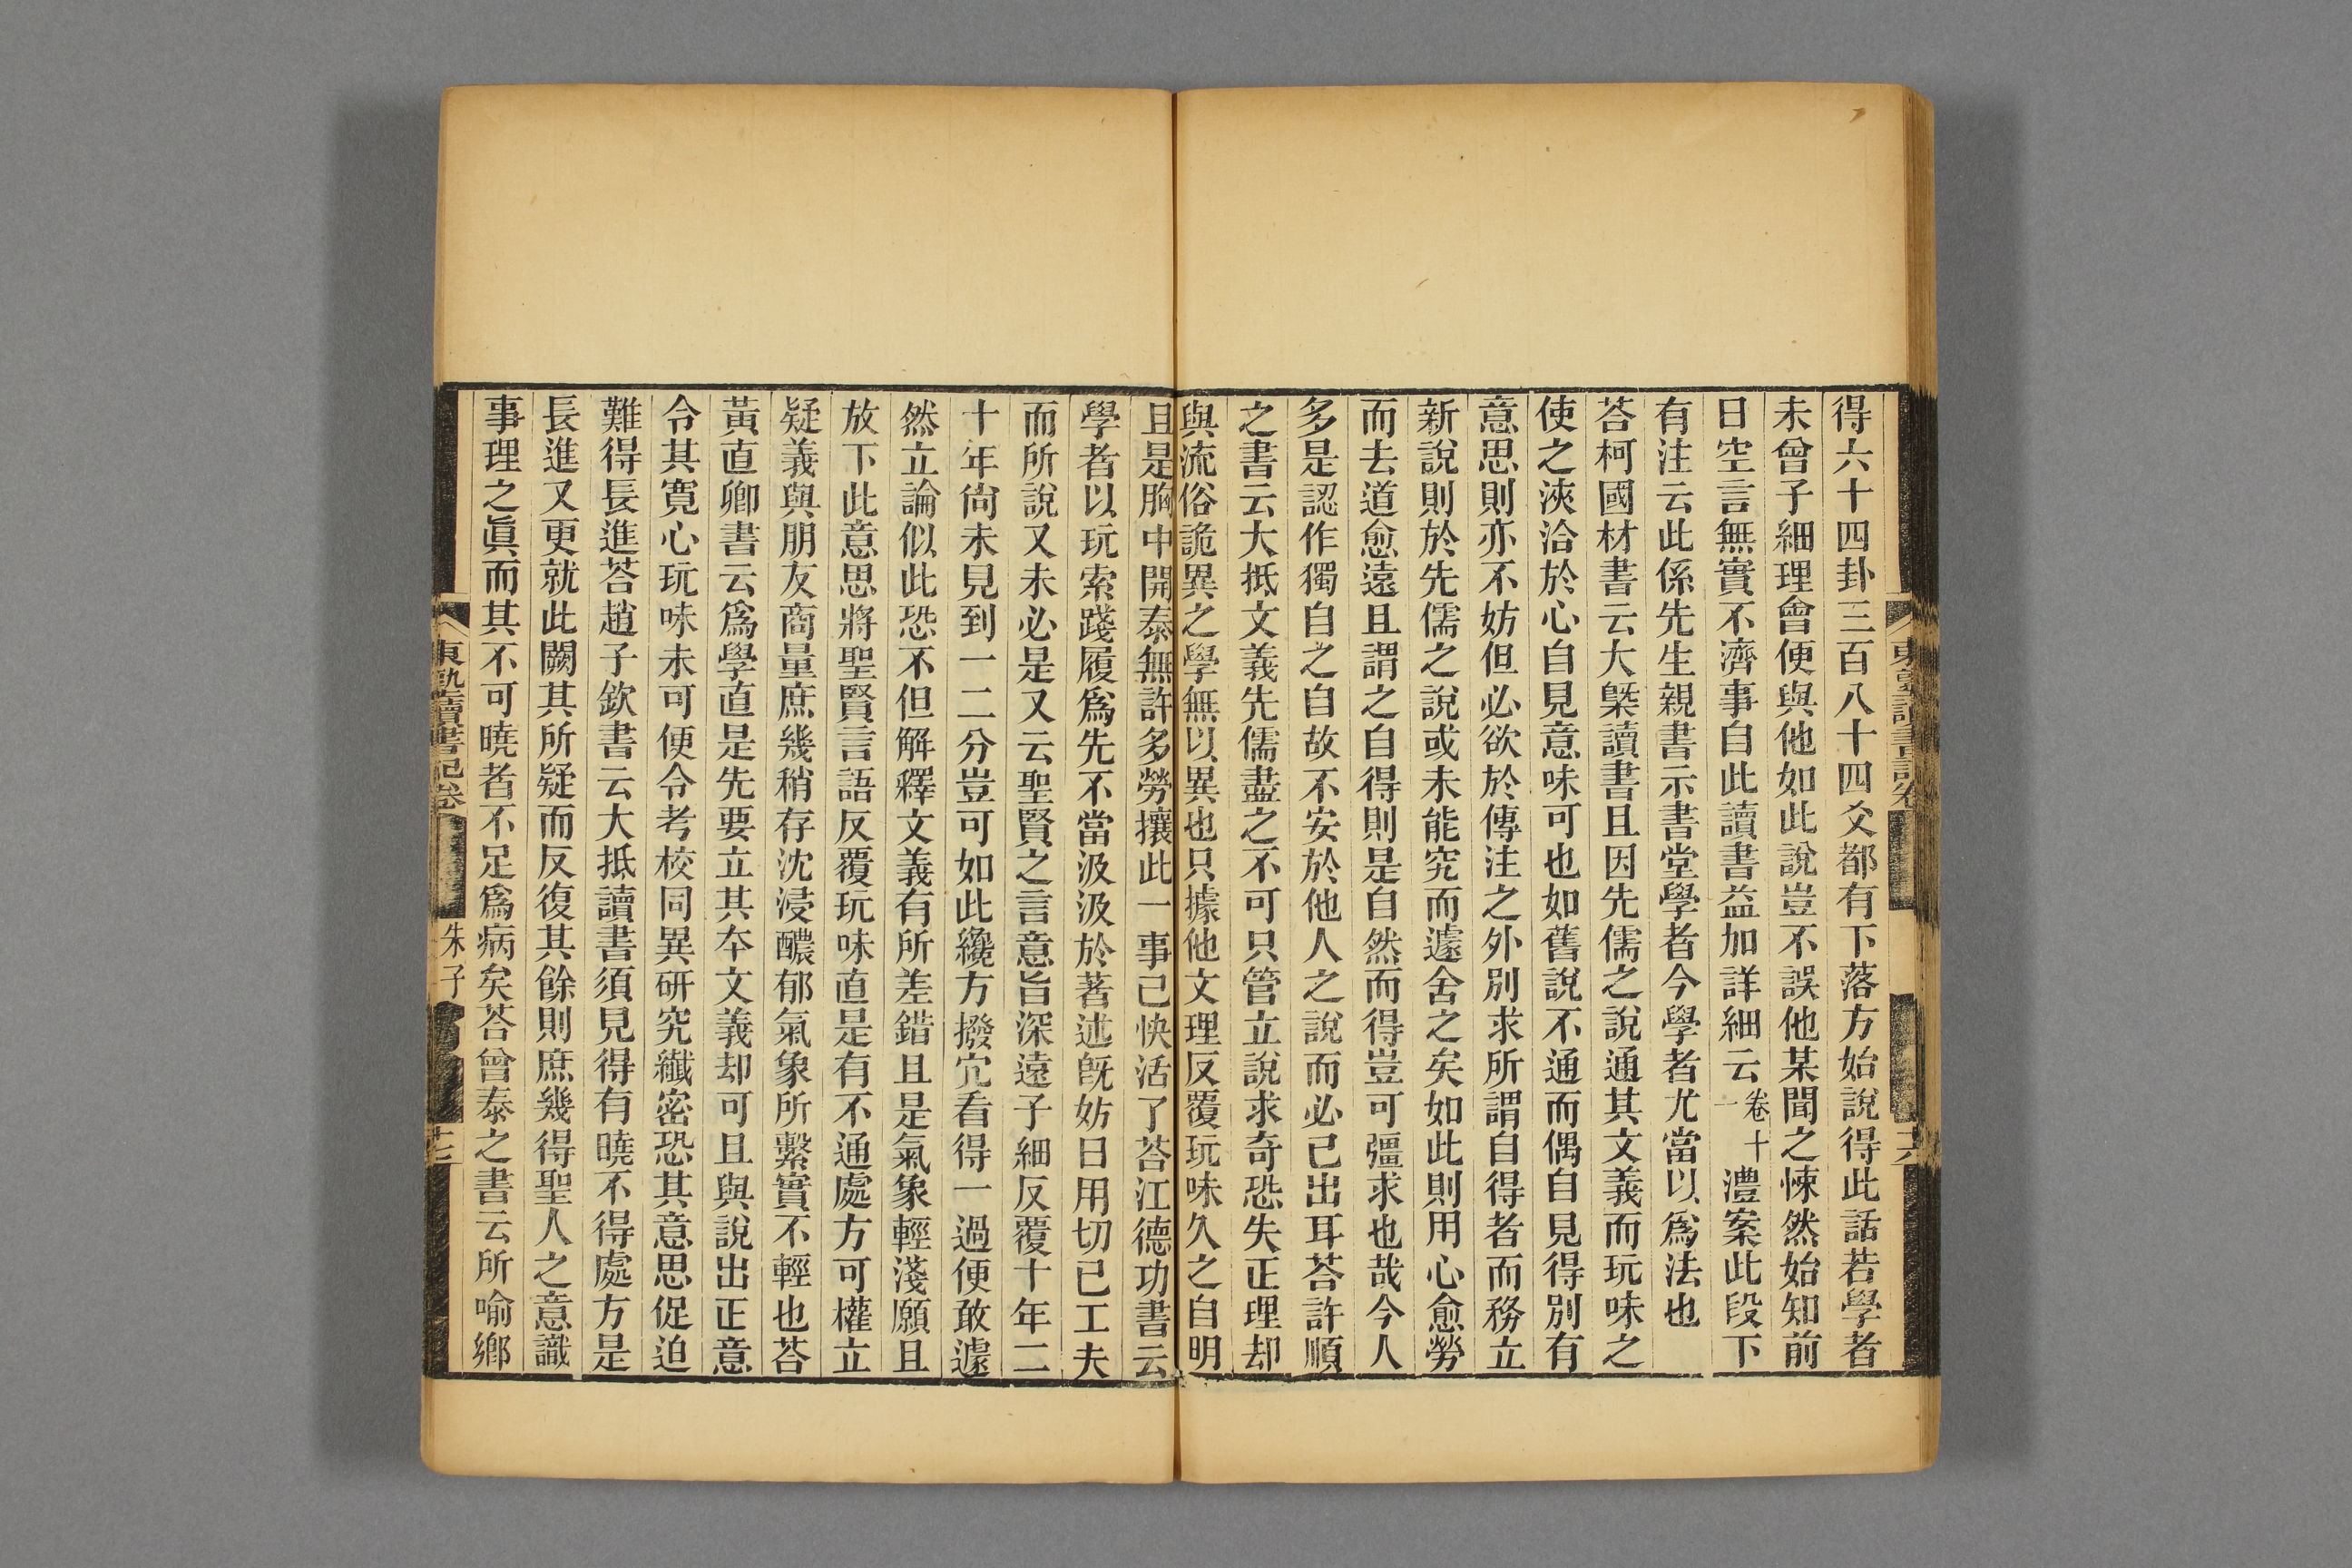 得六十四卦三百八十四爻都有下落方始說得此話若學者
未曾子細理會便與他如此說豈不誤他某聞之悚然始知前
日空言無實不濟事自此讀書益加詳細云卷十一澧案此段下
有注云此係先生親書示書堂學者今學者尤當以爲法也
荅柯國材書云大槩讀書且因先儒之說通其文義而玩味之
使之浹洽於心自見意味可也如舊說不通而偶自見得別有
意思則亦不妨但必欲於傳注之外別求所謂自得者而務立
新說則於先儒之說或未能究而遽舍之矣如此則用心愈勞
而去道愈遠且謂之自得則是自然而得豈可彊求也哉今人
多是認作獨自之自故不安於他人之說而必己出耳荅許順
之書云大抵文義先儒盡之不可只管立說求奇恐失正理却
與流俗詭異之學無以異也只據他文理反覆玩味久之自明
且是胸中開泰無許多勞攘此一事已快活了荅江德功書云
學者以玩索踐履爲先不當汲汲於著述旣妨日用切己工夫
而所說又未必是又云聖賢之言意旨深遠子細反覆十年二
十年尙未見到一二分豈可如此纔方撥冗看得一過便敢遽
然立論似此恐不但解釋文義有所差錯且是氣象輕淺願且
放下此意思將聖賢言語反覆玩味直是有不通處方可權立
疑義與朋友商量庶幾稍存沈浸醲郁氣象所繫實不輕也荅
黃直卿書云爲學直是先要立其夲文義却可且與說出正意
令其寬心玩味未可便令考校同異研究纖密恐其意思促迫
難得長進荅趙子欽書云大抵讀書須見得有曉不得處方是
長進又更就此闕其所疑而反復其餘則庶幾得聖人之意識
事理之眞而其不可曉者不足爲病矣荅曾泰之書云所喻鄕
東塾讀書記卷
朱子